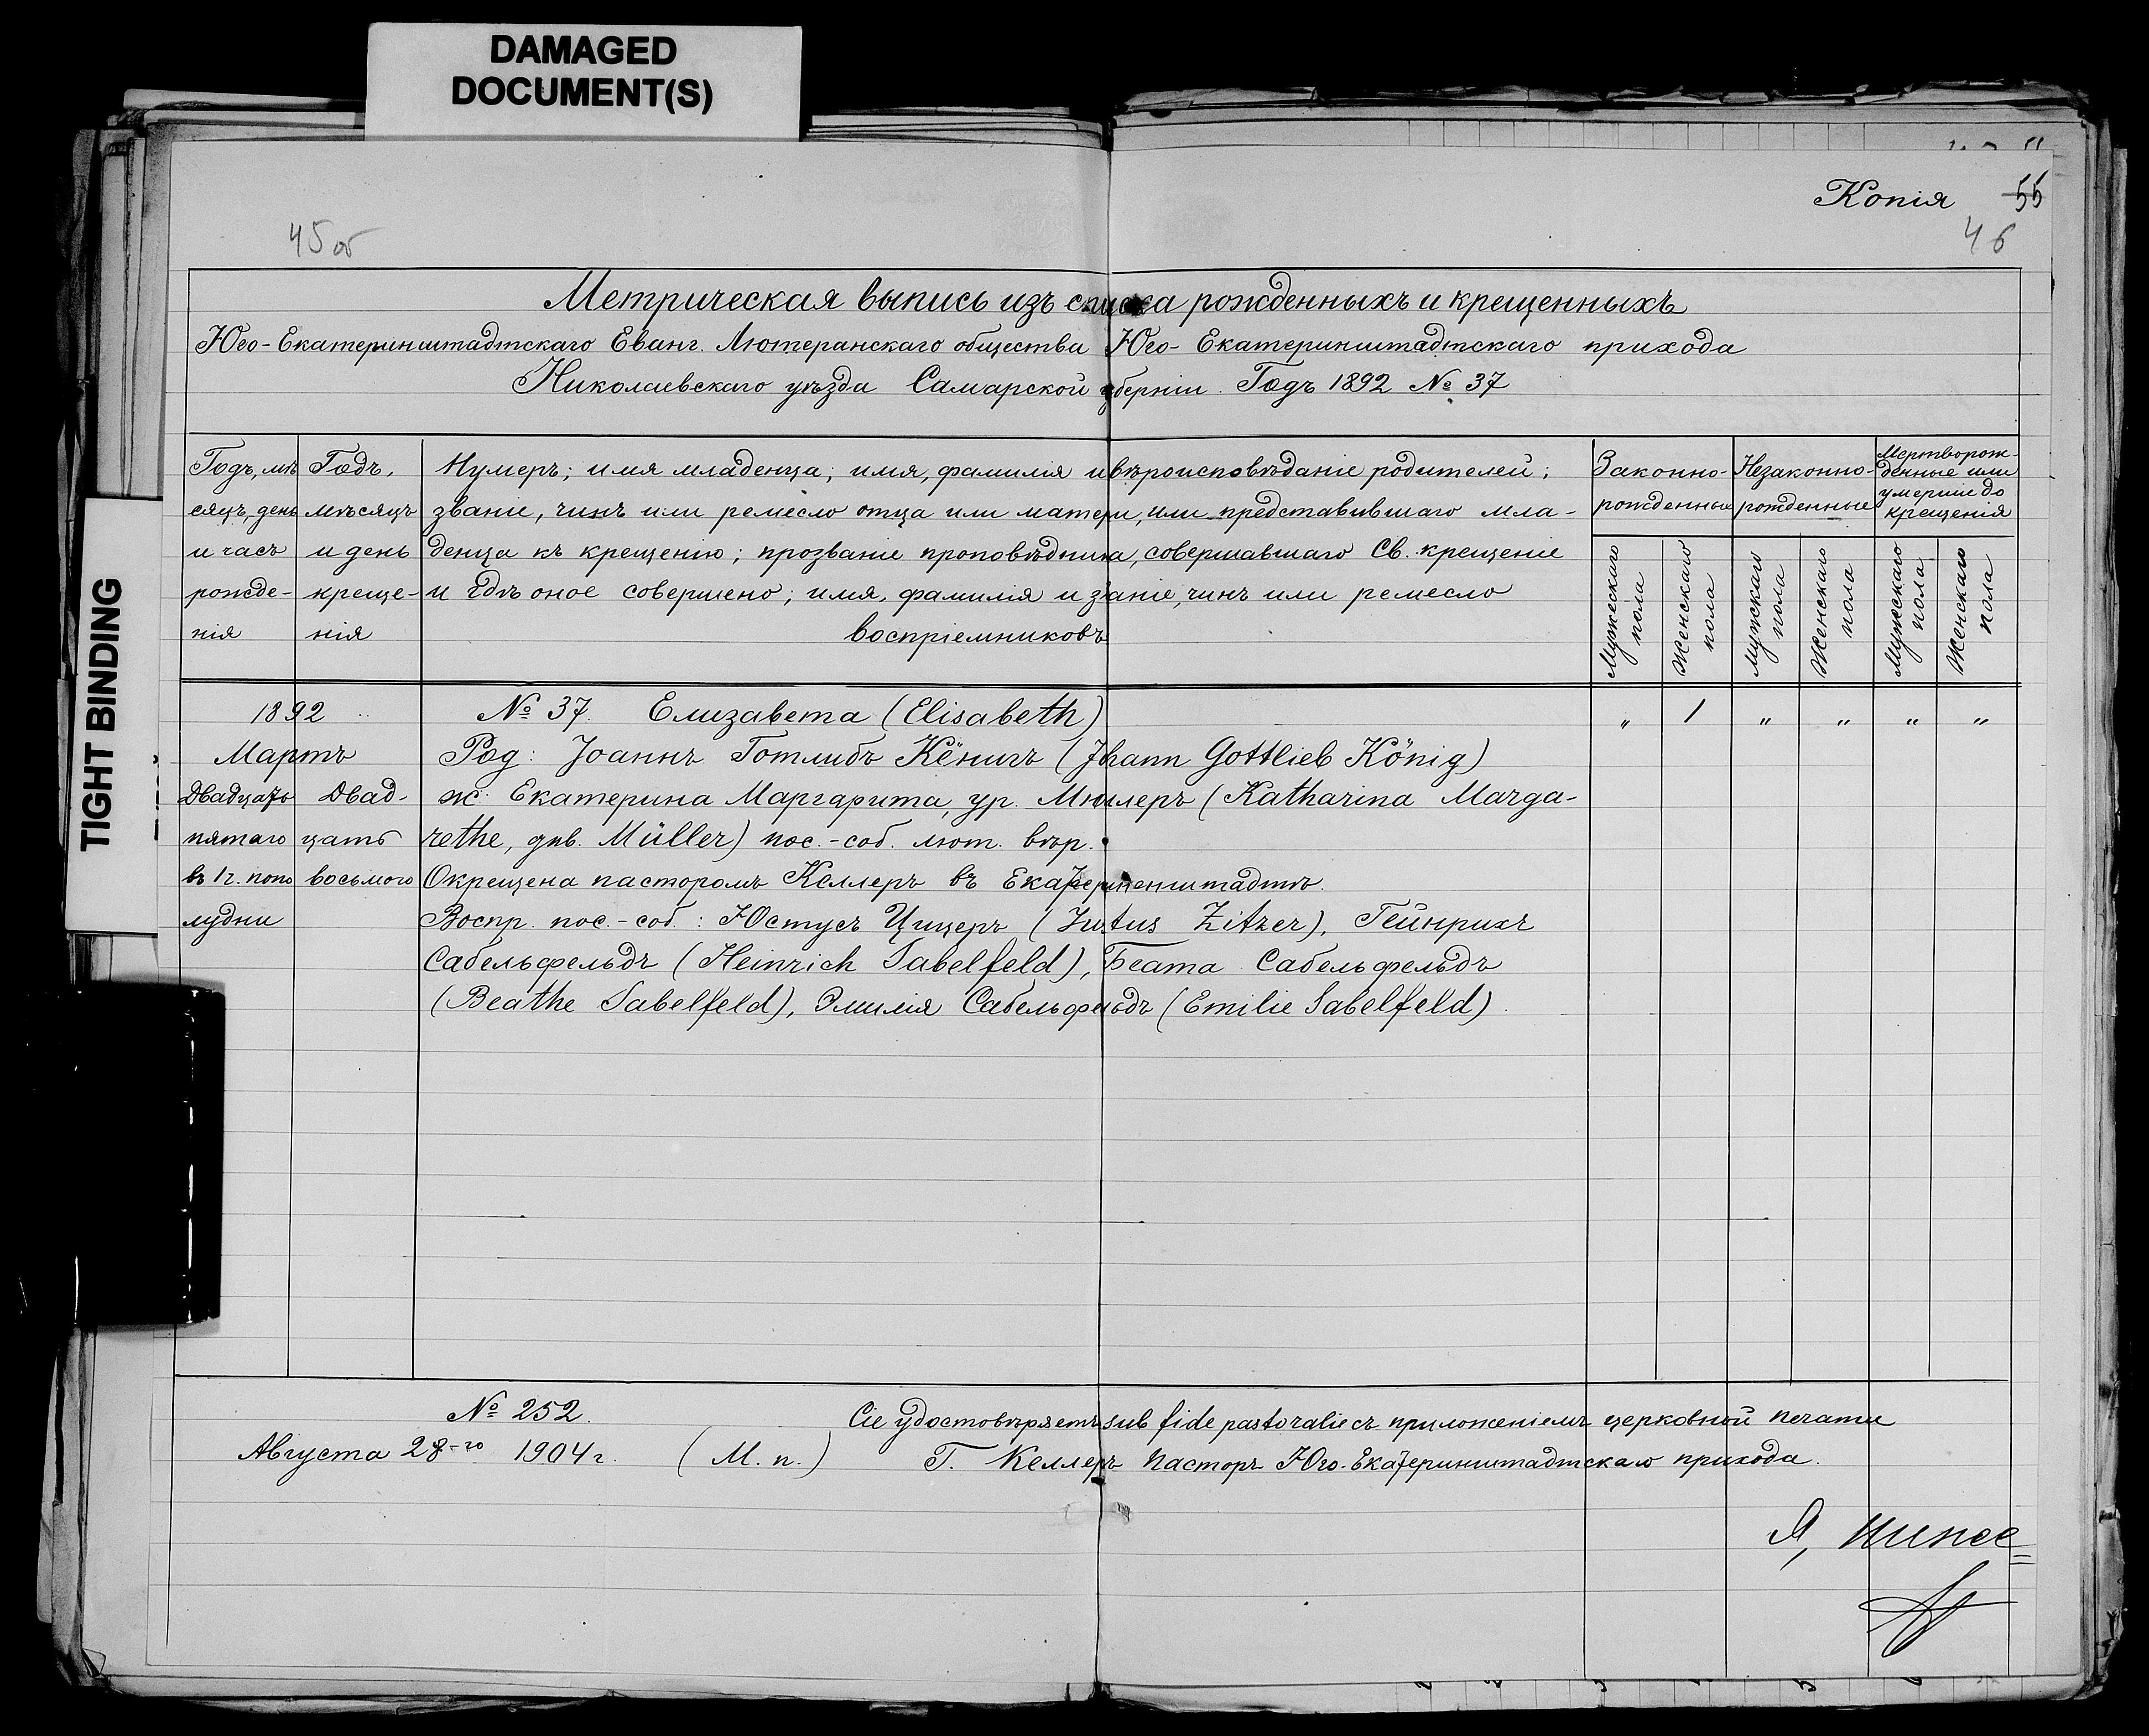 DAMAGED
DOCUMENT(S)
TIGHT BINDING
Копія 55
45об
46
Метрическая выпись изъ списка рожденныхъ и крещенныхъ
Юго-Екатеринштадтскаго Еванг. Лютеранскаго общества Юго-Екатеринштадтскаго прихода
Николаевскаго уѣзда Самарской губерніи. Годъ 1892 № 37
Годъ, мѣ-
сяцъ, день
и часъ
рожде-
нія
Годъ,
мѣсяцъ
и день
креще-
нія
Нумеръ; имя младенца; имя, фамилія и вѣроисповѣданіе родителей;
званіе, чинъ или ремесло отца или матери, или представившаго мла-
денца къ крещенію; прозваніе проповѣдника, совершавшаго Св. крещеніе
и гдѣ оное совершено; имя, фамилія и званіе, чинъ или ремесло
воспріемниковъ
Законно-
рожденные
Незаконно-
рожденные
Мертворож-
денные или
умершіе до
крещенія
Мужескаго пола
Женскаго пола
Мужскаго пола
Женскаго пола
Мужескаго пола
Женскаго пола
1892
Мартъ
Двадцать
пятаго
въ 1 ч. попо
лудни
Двад-
цать
восьмого
№ 37. Елизавета (Elisabeth)
„ 1 „ „ „ „
Род: Іоаннъ Готлибъ Кёнигъ (Jhann Gottlieb König)
ж. Екатерина Маргарита, ур. Миллеръ (Katharina Marga-
rethe, дѣв. Müller) пос.-соб. лют. вѣр.
Окрещена пасторомъ Келлеръ въ Екатериненштадтѣ.
Воспр. пос.-соб.: Юстусъ Цицеръ (Justus Zitzer), Гейнрихъ
Сабельфельдъ (Heinrich Sabelfeld), Беата Сабельфельдъ
(Beathe Sabelfeld), Эмилія Сабельфельдъ (Emilie Sabelfeld).
№ 252.
Августа 28-го 1904 г. (М. п.)
Сіе удостовѣряетъ sub fide pastoralie съ приложеніемъ церковной печати
Г. Келлеръ Пасторъ Юго-Екатеринштадтскаго прихода.
Я, ниже=